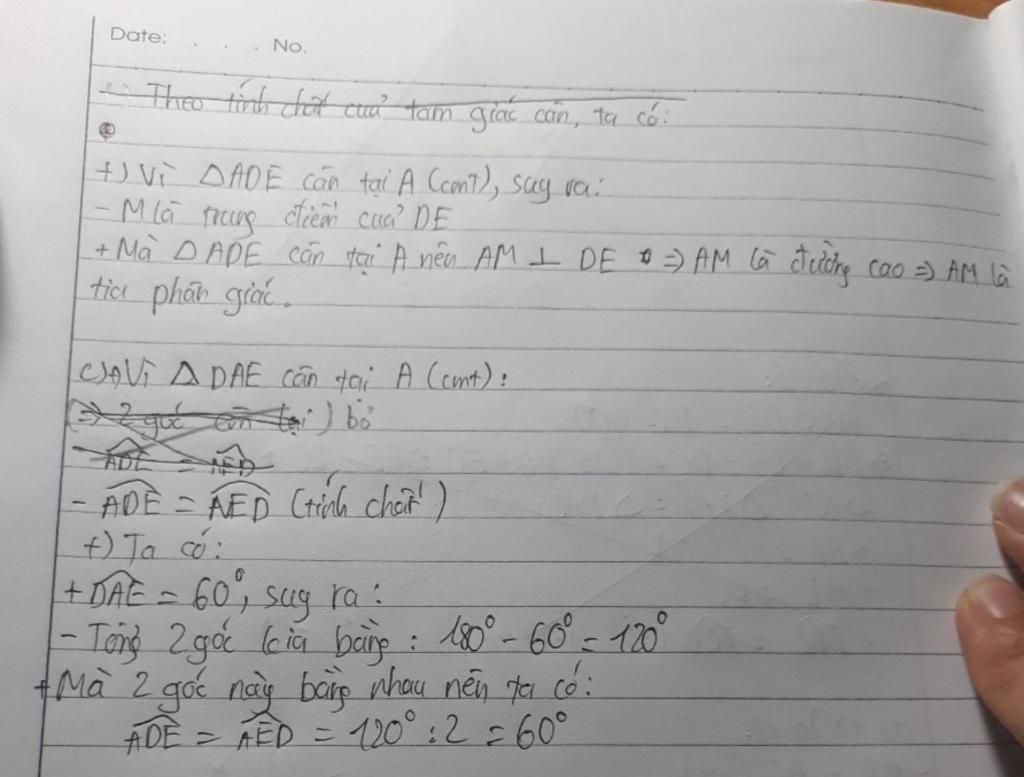 Date: . . . No.
Theo tính chất của tam giác cân, ta có:
+) Vì △ADE cân tại A (cmt), suy ra:
- M là trung điểm của DE
+ Mà △ADE cân tại A nên AM ⊥ DE ⇒ AM là đường cao ⇒ AM là
tia phân giác.
c) Vì △DAE cân tại A (cmt):
(⇒ 2 góc còn lại) bỏ
ADE = AED
- ADE = AED (tính chất)
+) Ta có:
+ DAE = 60°, suy ra:
- Tổng 2 góc kia bằng: 180° - 60° = 120°
+ Mà 2 góc này bằng nhau nên ta có:
ADE = AED = 120° : 2 = 60°